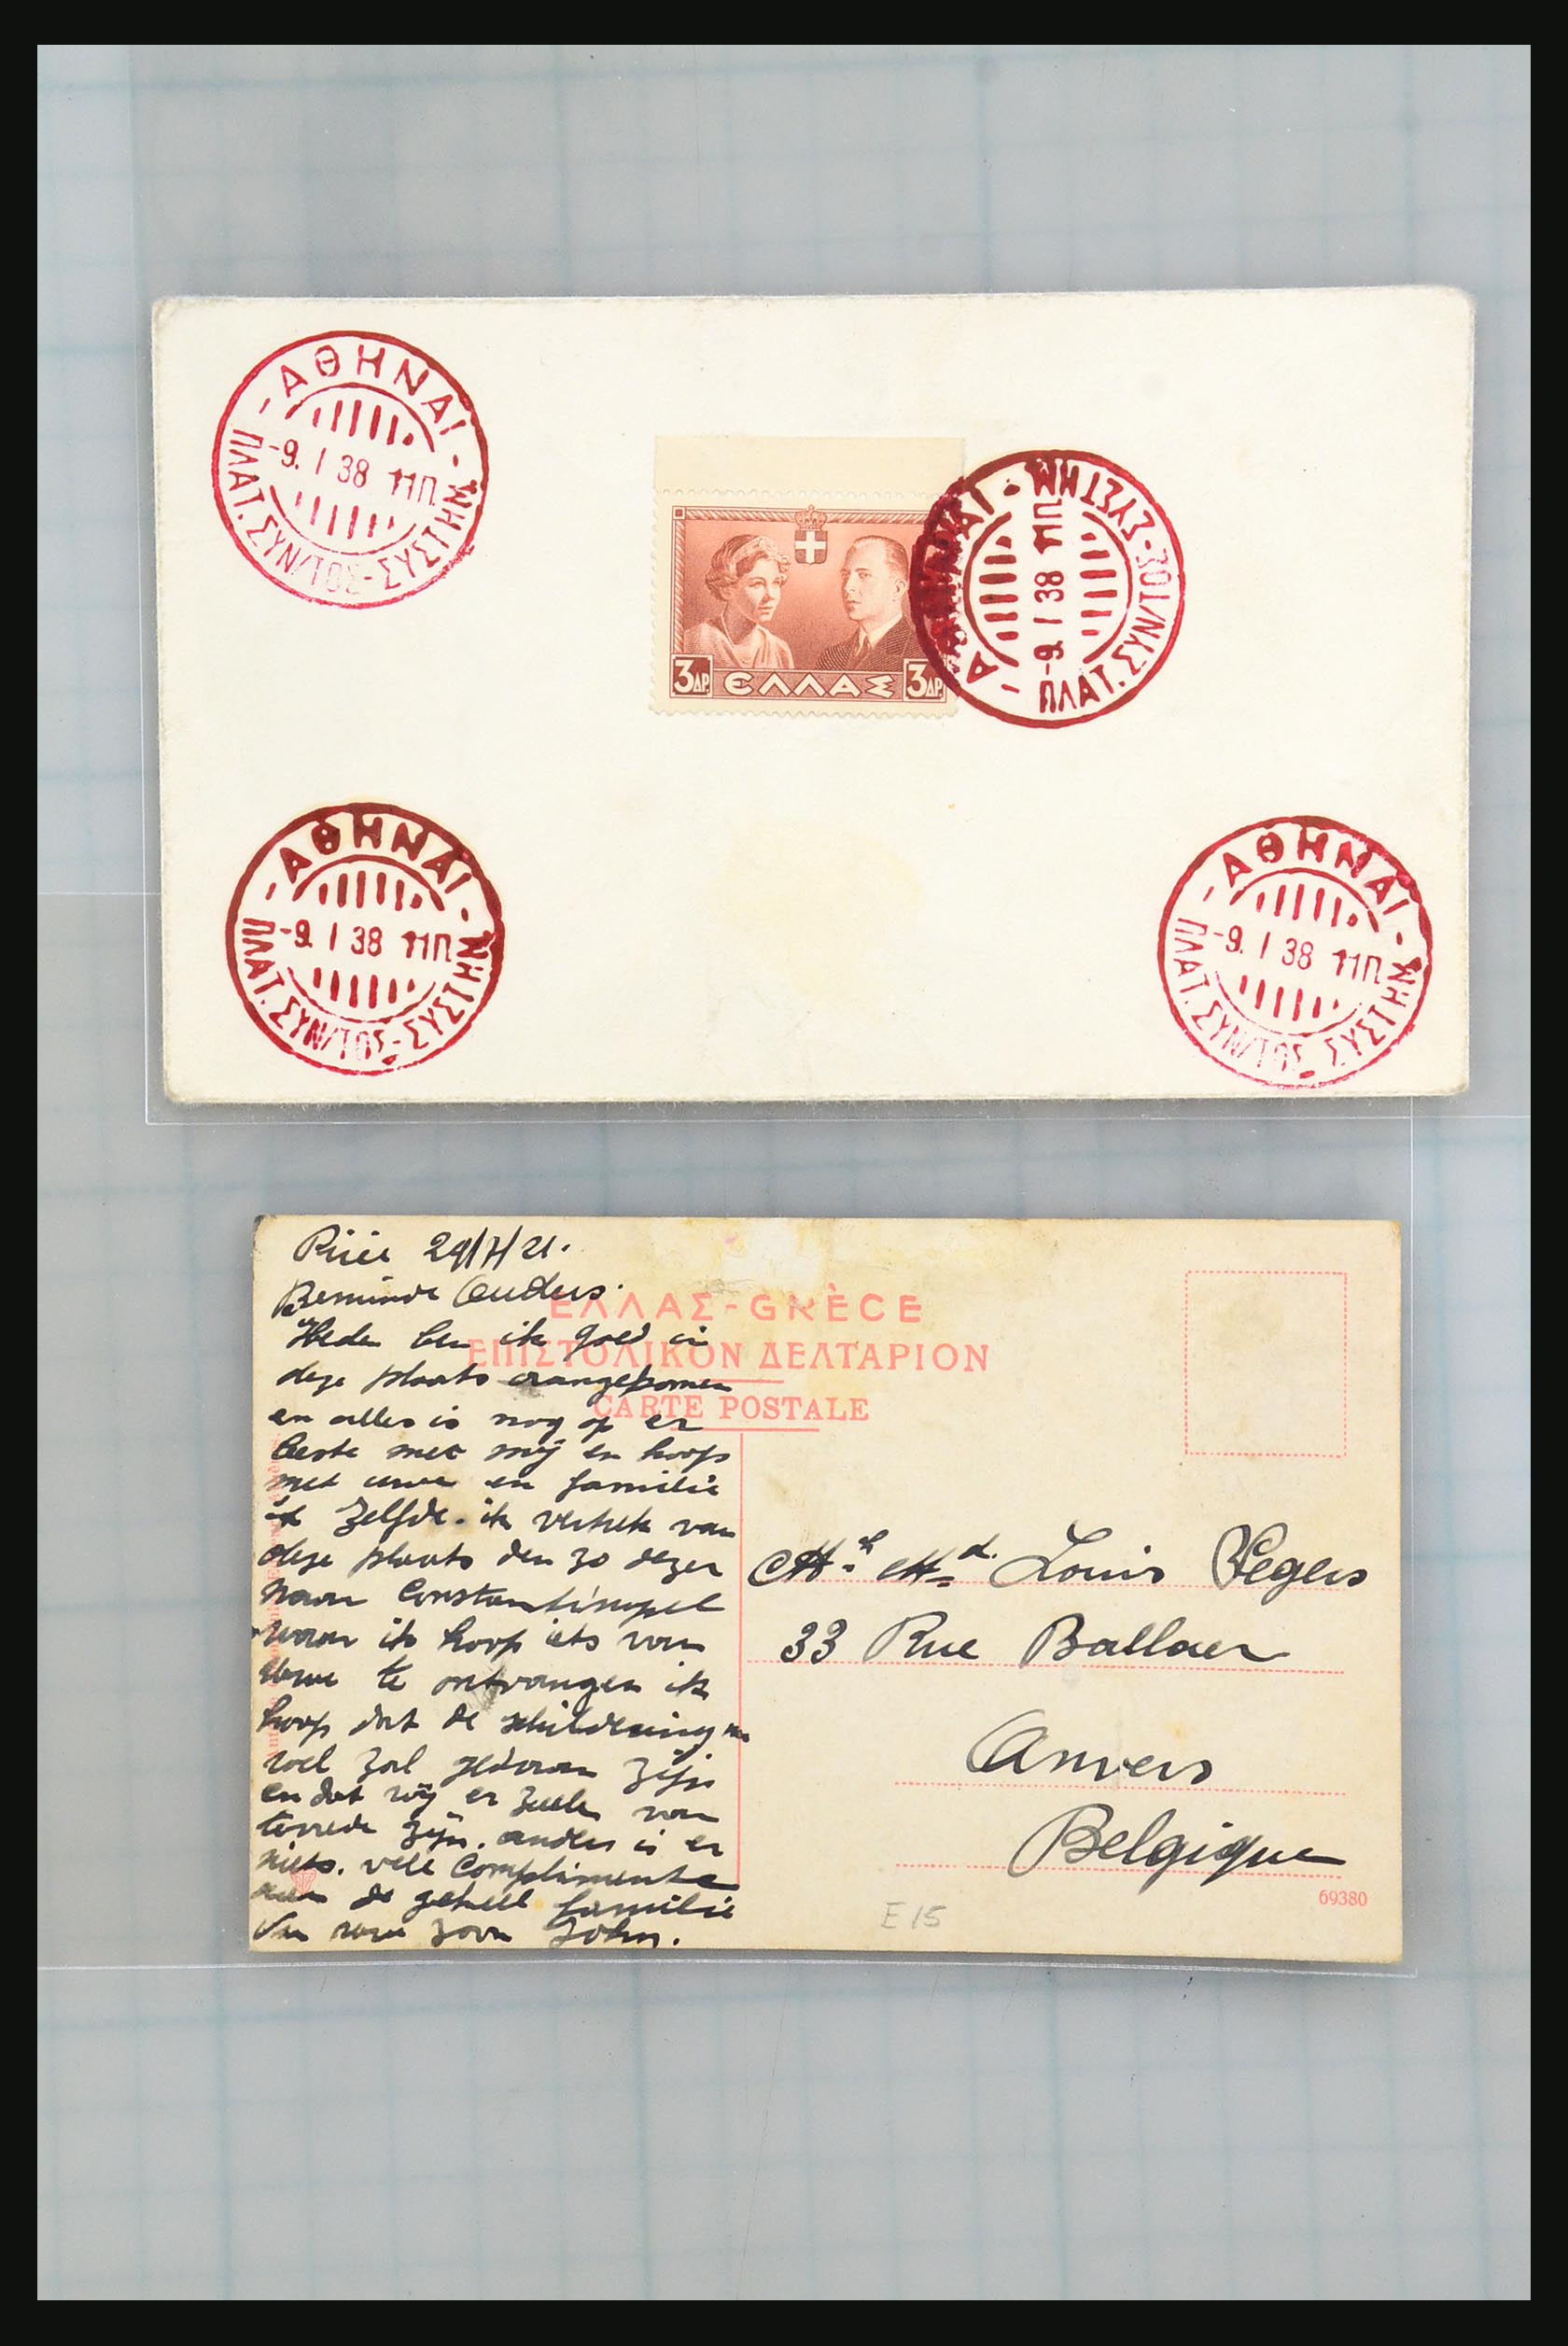 - ΑΘΗΝΑΙ -
-9. Ι 38 11Π.
ΠΛΑΤ. ΣΥΝ/ΤΟΣ-ΣΥΣΤΗΜ
3ΔΡ ΕΛΛΑΣ 3ΔΡ
- ΑΘΗΝΑΙ -
-9. Ι 38 11Π.
ΠΛΑΤ. ΣΥΝ/ΤΟΣ-ΣΥΣΤΗΜ
- ΑΘΗΝΑΙ -
-9. Ι 38 11Π.
ΠΛΑΤ. ΣΥΝ/ΤΟΣ-ΣΥΣΤΗΜ
- ΑΘΗΝΑΙ -
-9. Ι 38 11Π.
ΠΛΑΤ. ΣΥΝ/ΤΟΣ ΣΥΣΤΗΜ
29/7/21.
Beminde Ouders.
Heden ben ik goed in
deze plaats aangekomen
en alles is nog op er
beste met mij en hoop
met uwe en familie
't zelfde. ik vertrek van
deze plaats den 30 dezer
naar Constantinopel
waar ik hoop iets van
uwe te ontvangen ik
hoop dat de schildering
wel zal gedaan zijn
en dat wij er zullen van
tevrede zijn. anders is er
niets. vele Complimente
aan de geheel familie
Van uwe zoon John.
ΕΛΛΑΣ-GRÈCE
ΕΠΙΣΤΟΛΙΚΟΝ ΔΕΛΤΑΡΙΟΝ
CARTE POSTALE
Louis Segers
33 Rue Ballaer
Anvers
Belgique
69380
E 15